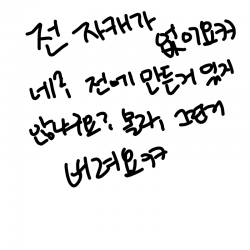 전 자캐가 없어요ㅋㅋ
네? 전에 만든거 있지
않냐구요? 몰라, 그런거
버려요ㅋㅋ